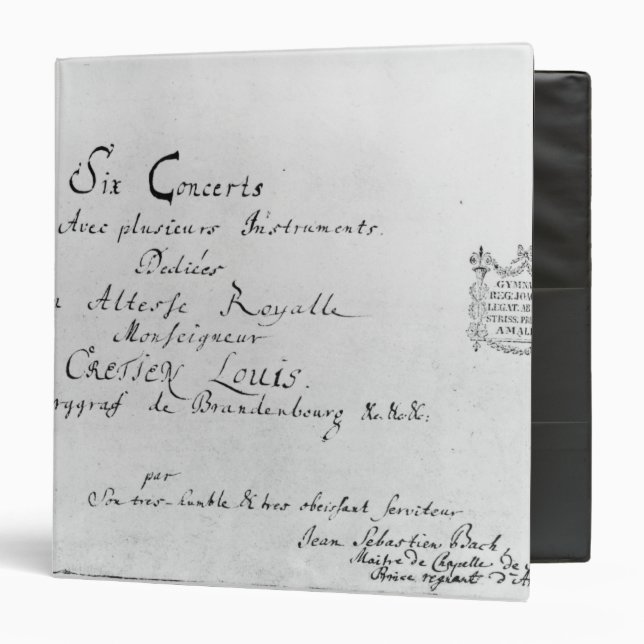 Six Concerts
Avec plusieurs Instruments.
Dediées
Altesse Royalle
Monseigneur
CRETIEN Louis.
rggraf de Brandenbourg &c.&c.&c:
par
Son tres-humble & tres obeissant serviteur
Jean Sebastien Bach
Maitre de Chapelle de
Prince regnant d'A
GYMN
REG. IOA
LEGAT. AB
STRISS. PR
AMAL